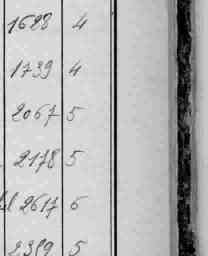 1628 4
1739 4
2067 5
2178 5
2617 6
2389 5